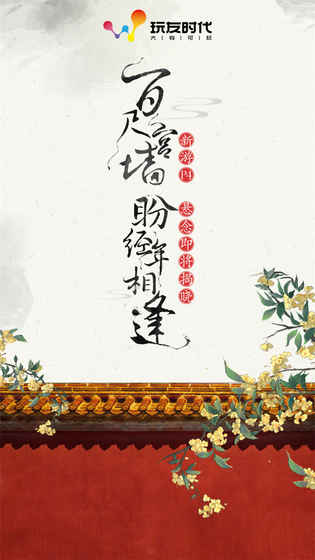 玩友时代
百尺宫墙
盼经年相逢
新游P4
悬念即将揭晓